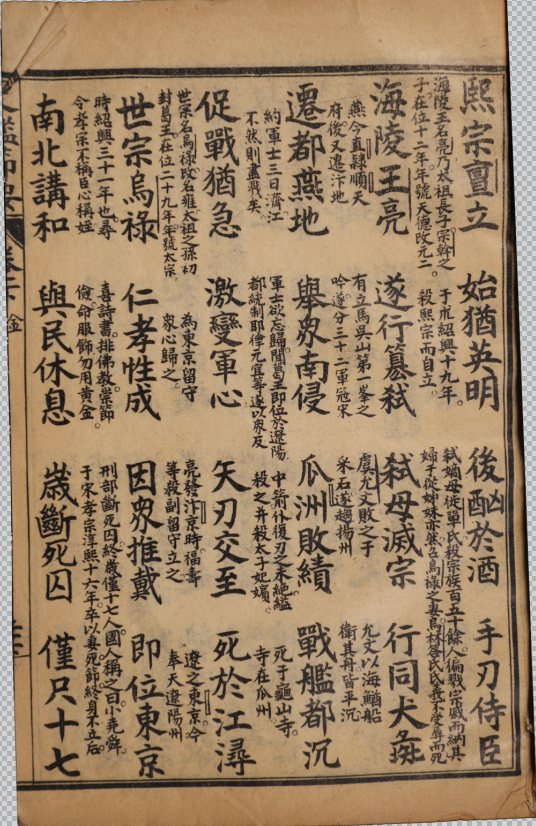 熙宗亶立 始猶英明 後酗於酒 手刃侍臣
海陵王名亮乃太祖長子宗幹之
子。在位十二年年號天德改元二。
于宋紹興十九年。
殺熙宗而自立。
弒嫡母徒單氏殺宗族百五十餘人偏戮宗戚而納其
婦子從姊妹亦然名烏祿之妻烏林答氏
海陵王亮 遂行篡弒 弒母滅宗 行同犬彘
燕今直隸順天
府後又遷汴地
有立馬吳山第一峯之
吟遂分三十二軍寇宋
虞允文敗之于
采石遂趨揚州
允文以海鰌船
衝其舟皆平沉
遷都燕地 舉眾南侵 瓜洲敗績 戰艦都沉
約軍士三日濟江
不然則盡戮矣。
軍士欲忘歸聞葛王即位於遼陽
都統制耶律元宜等遂以眾反
中箭仆復刃之未絕縊
殺之并殺太子妃嬪。
死于龜山寺。
寺在瓜州。
促戰猶急 激變軍心 矢刃交至 死於江潯
世宗名烏祿改名雍太祖之孫初
封葛王在位二十九年年號大宗
為東京留守
眾心歸之。
亮發汴京時福壽
等殺副留守立之
遼之東京今
奉天遼陽州
世宗烏祿 仁孝性成 因眾推戴 即位東京
時紹興三十一年也尋
令孝宗不稱臣心稱姪
喜詩書。排佛教崇節
儉。命服飾勿用黃金
刑部斷死囚終歲僅十七人國人稱之曰小堯舜。
于宋孝宗淳熙十六年。卒以妻死節終身不立后。
南北講和 與民休息 歲斷死囚 僅只十七